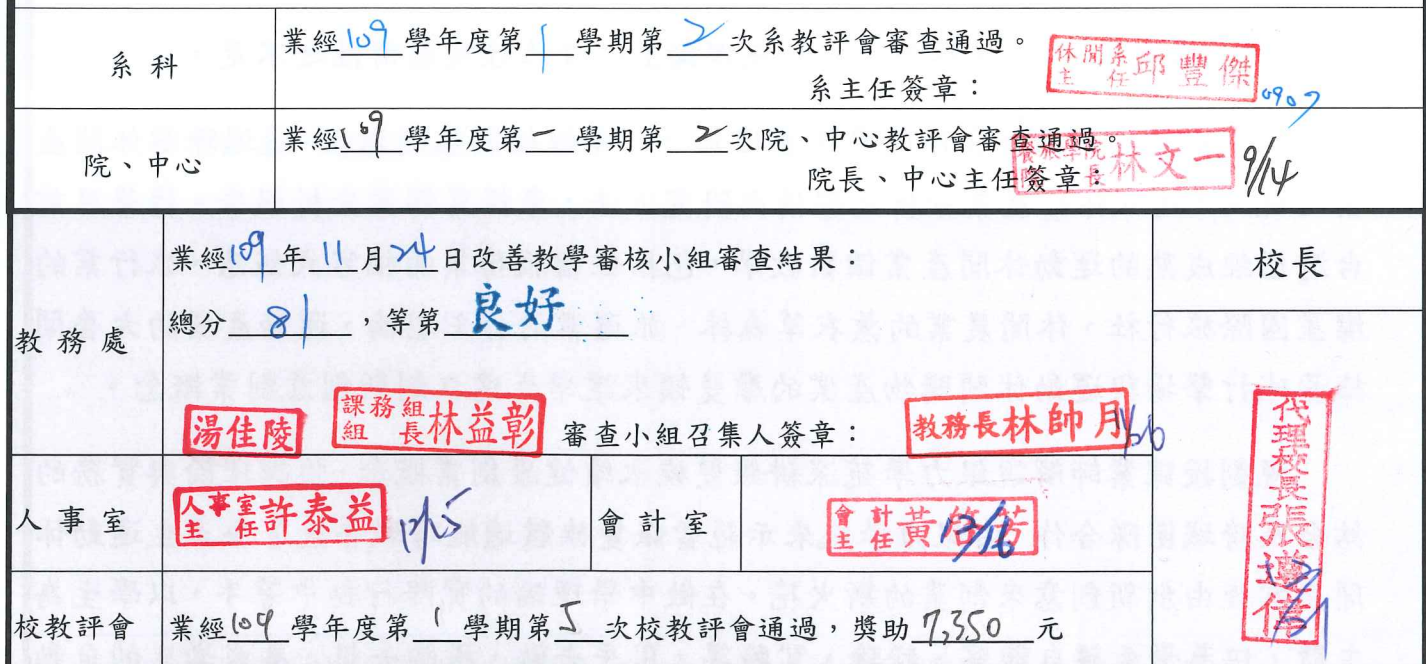 系科
業經109學年度第1學期第2次系教評會審查通過。
系主任簽章：
休閒系主任 邱豐傑
0907
院、中心
業經109學年度第一學期第2次院、中心教評會審查通過。
院長、中心主任簽章：
學院院長 林文一
9/14
教務處
業經109年11月24日改善教學審核小組審查結果：
總分 81 ，等第 良好
湯佳陵
課務組組長林益彰
審查小組召集人簽章：
教務長林帥月
校長
代理校長張遵偉
人事室
人事室主任許泰益
會計室
會計主任黃
校教評會
業經109學年度第1學期第5次校教評會通過，獎助7,350元